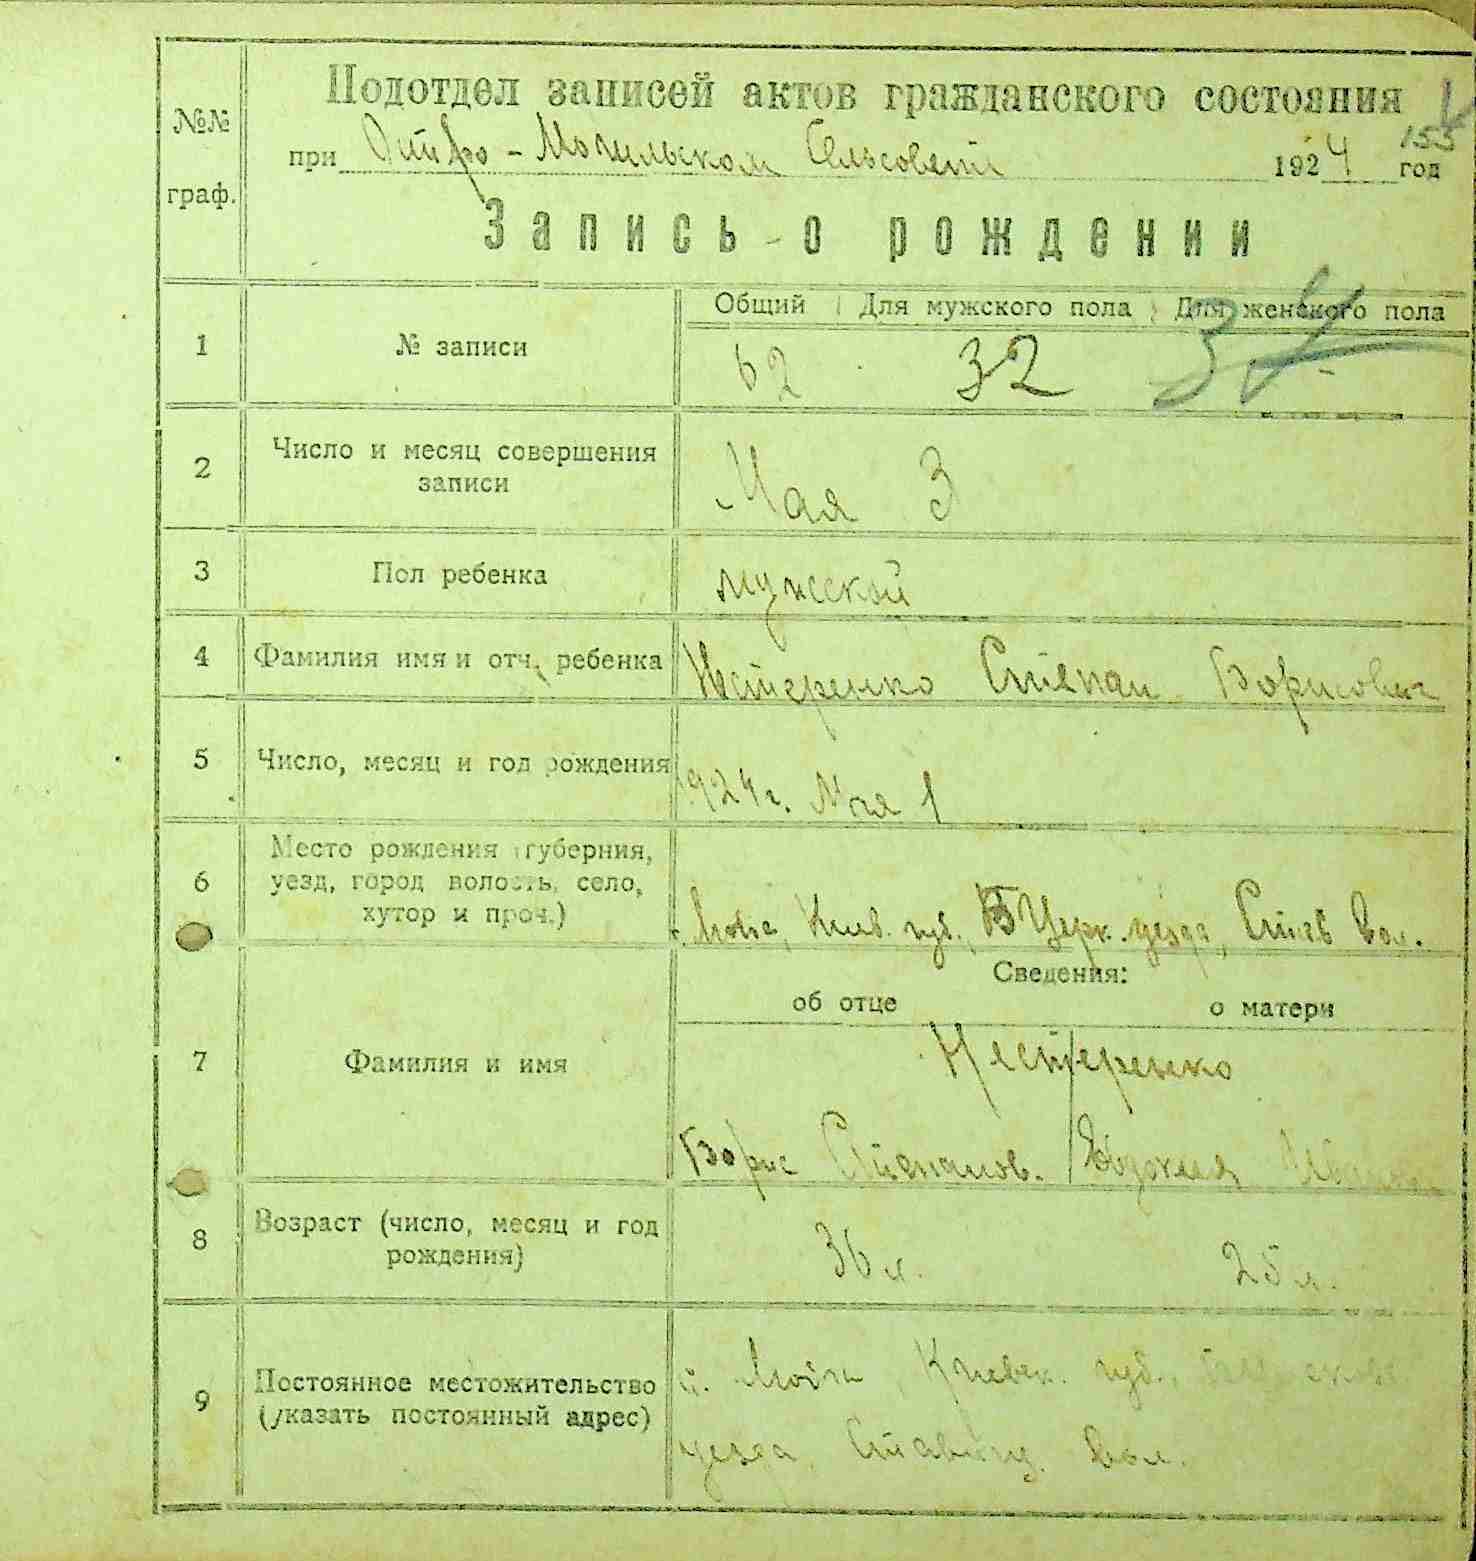 №№ граф.
Подотдел записей актов гражданского состояния
155
при Остро-Могильском Сельсовете 1924 год
Запись о рождении
Общий Для мужского пола Для женского пола
1 № записи 62 32
2 Число и месяц совершения записи Мая 3
3 Пол ребенка мужской
4 Фамилия имя и отч. ребенка Нестеренко Степан Борисович
5 Число, месяц и год рождения 1924 г. Мая 1
6 Место рождения (губерния,
уезд, город волость, село,
хутор и проч.) Киев. губ., Б Церк. уезда, Став Вол.
Сведения:
об отце о матери
7 Фамилия и имя Нестеренко
Борис Степанов. Евдокия Иванов
8 Возраст (число, месяц и год
рождения) 36 л. 25 л.
9 Постоянное местожительство
(указать постоянный адрес) Киевск. губ.,
уезда Вол.